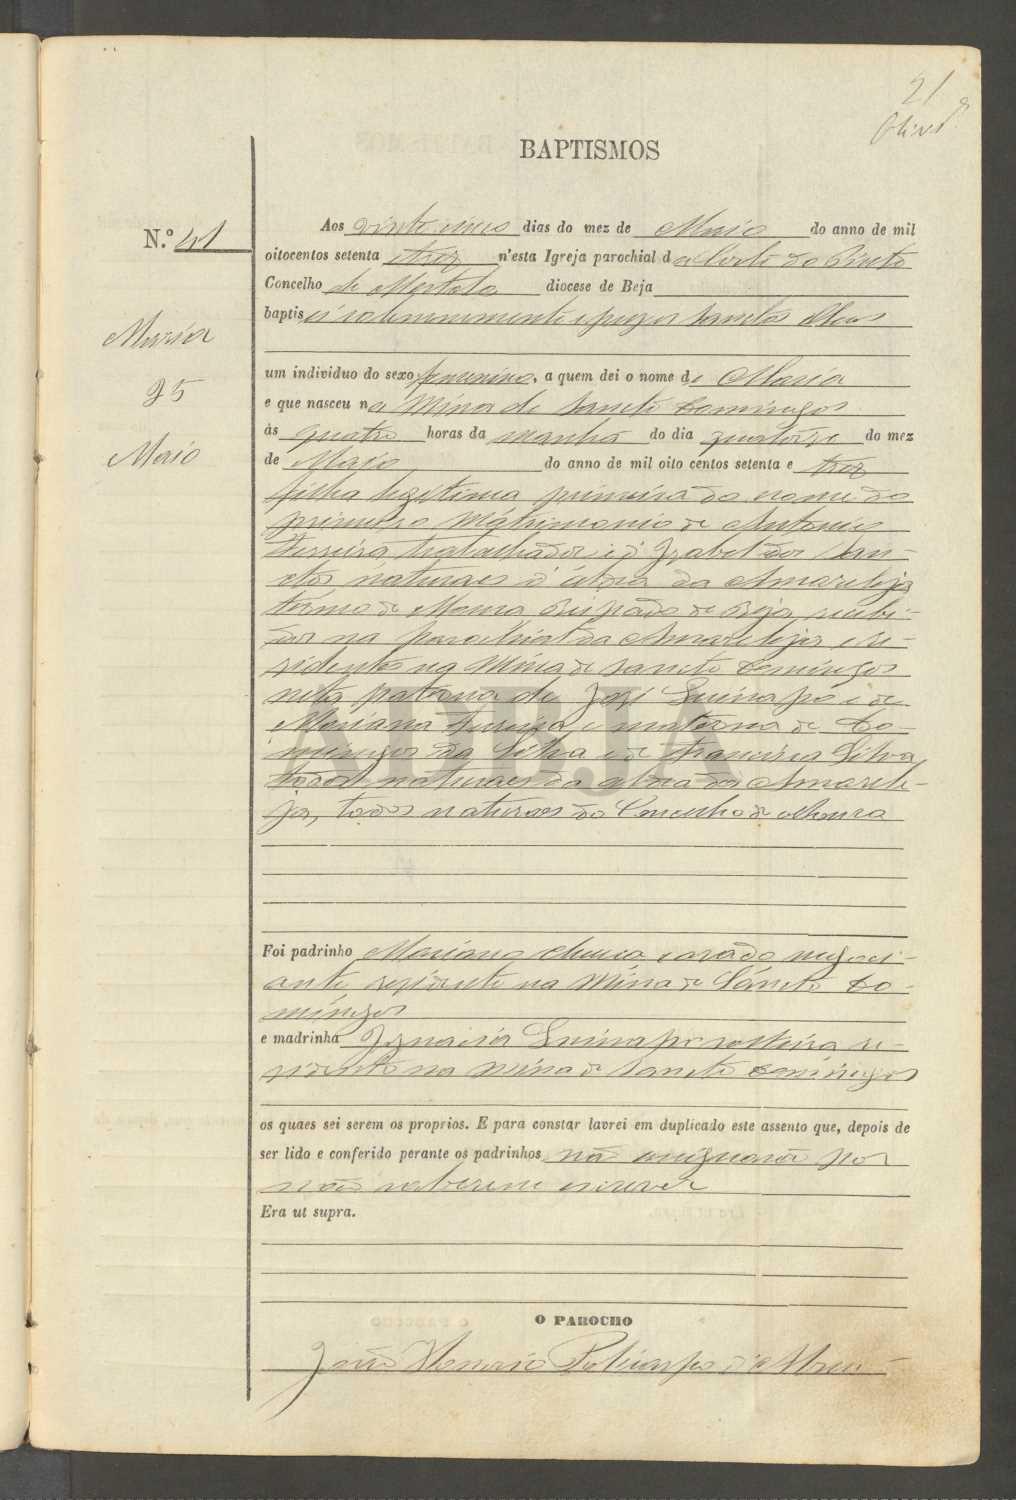 21
BAPTISMOS
N.º 41
Maria
25
Maio
Aos vinte cinco dias do mez de Maio do anno de mil
oitocentos setenta e trez n'esta Igreja parochial da Corte do Pinto
Concelho de Mertola diocese de Beja
baptisei solemnemente e puz os Sanctos Oleos
um individuo do sexo femenino, a quem dei o nome de Maria
e que nasceu na Mina de Sancto Domingos
às quatro horas da manhã do dia quatorze do mez
de Maio do anno de mil oito centos setenta e trez
filha legitima primeira do nome do
primeiro Matrimonio de Antonio
Ferreira trabalhador e d'Izabel dos San-
ctos naturaes d'aldea da Amareleja
termo de Moura Bispado de Beja recebi-
dos na parochial da Amareleja e re-
sidentes na Mina de Sancto Domingos
neta paterna de José e de
Mariana Ferreira e materna de Do-
mingos da Silva e de Francisca Silva
todos naturaes da aldea da Amarele-
ja, todos naturaes do Concelho de Moura
Foi padrinho Mariano casado negoci-
ante residente na Mina de Sancto Do-
mingos
e madrinha Ignacia solteira re-
sidente na Mina de Sancto Domingos
os quaes sei serem os proprios. E para constar lavrei em duplicado este assento que, depois de
ser lido e conferido perante os padrinhos não assignarão por
não saberem escrever
Era ut supra.
O PAROCHO
João Policarpo